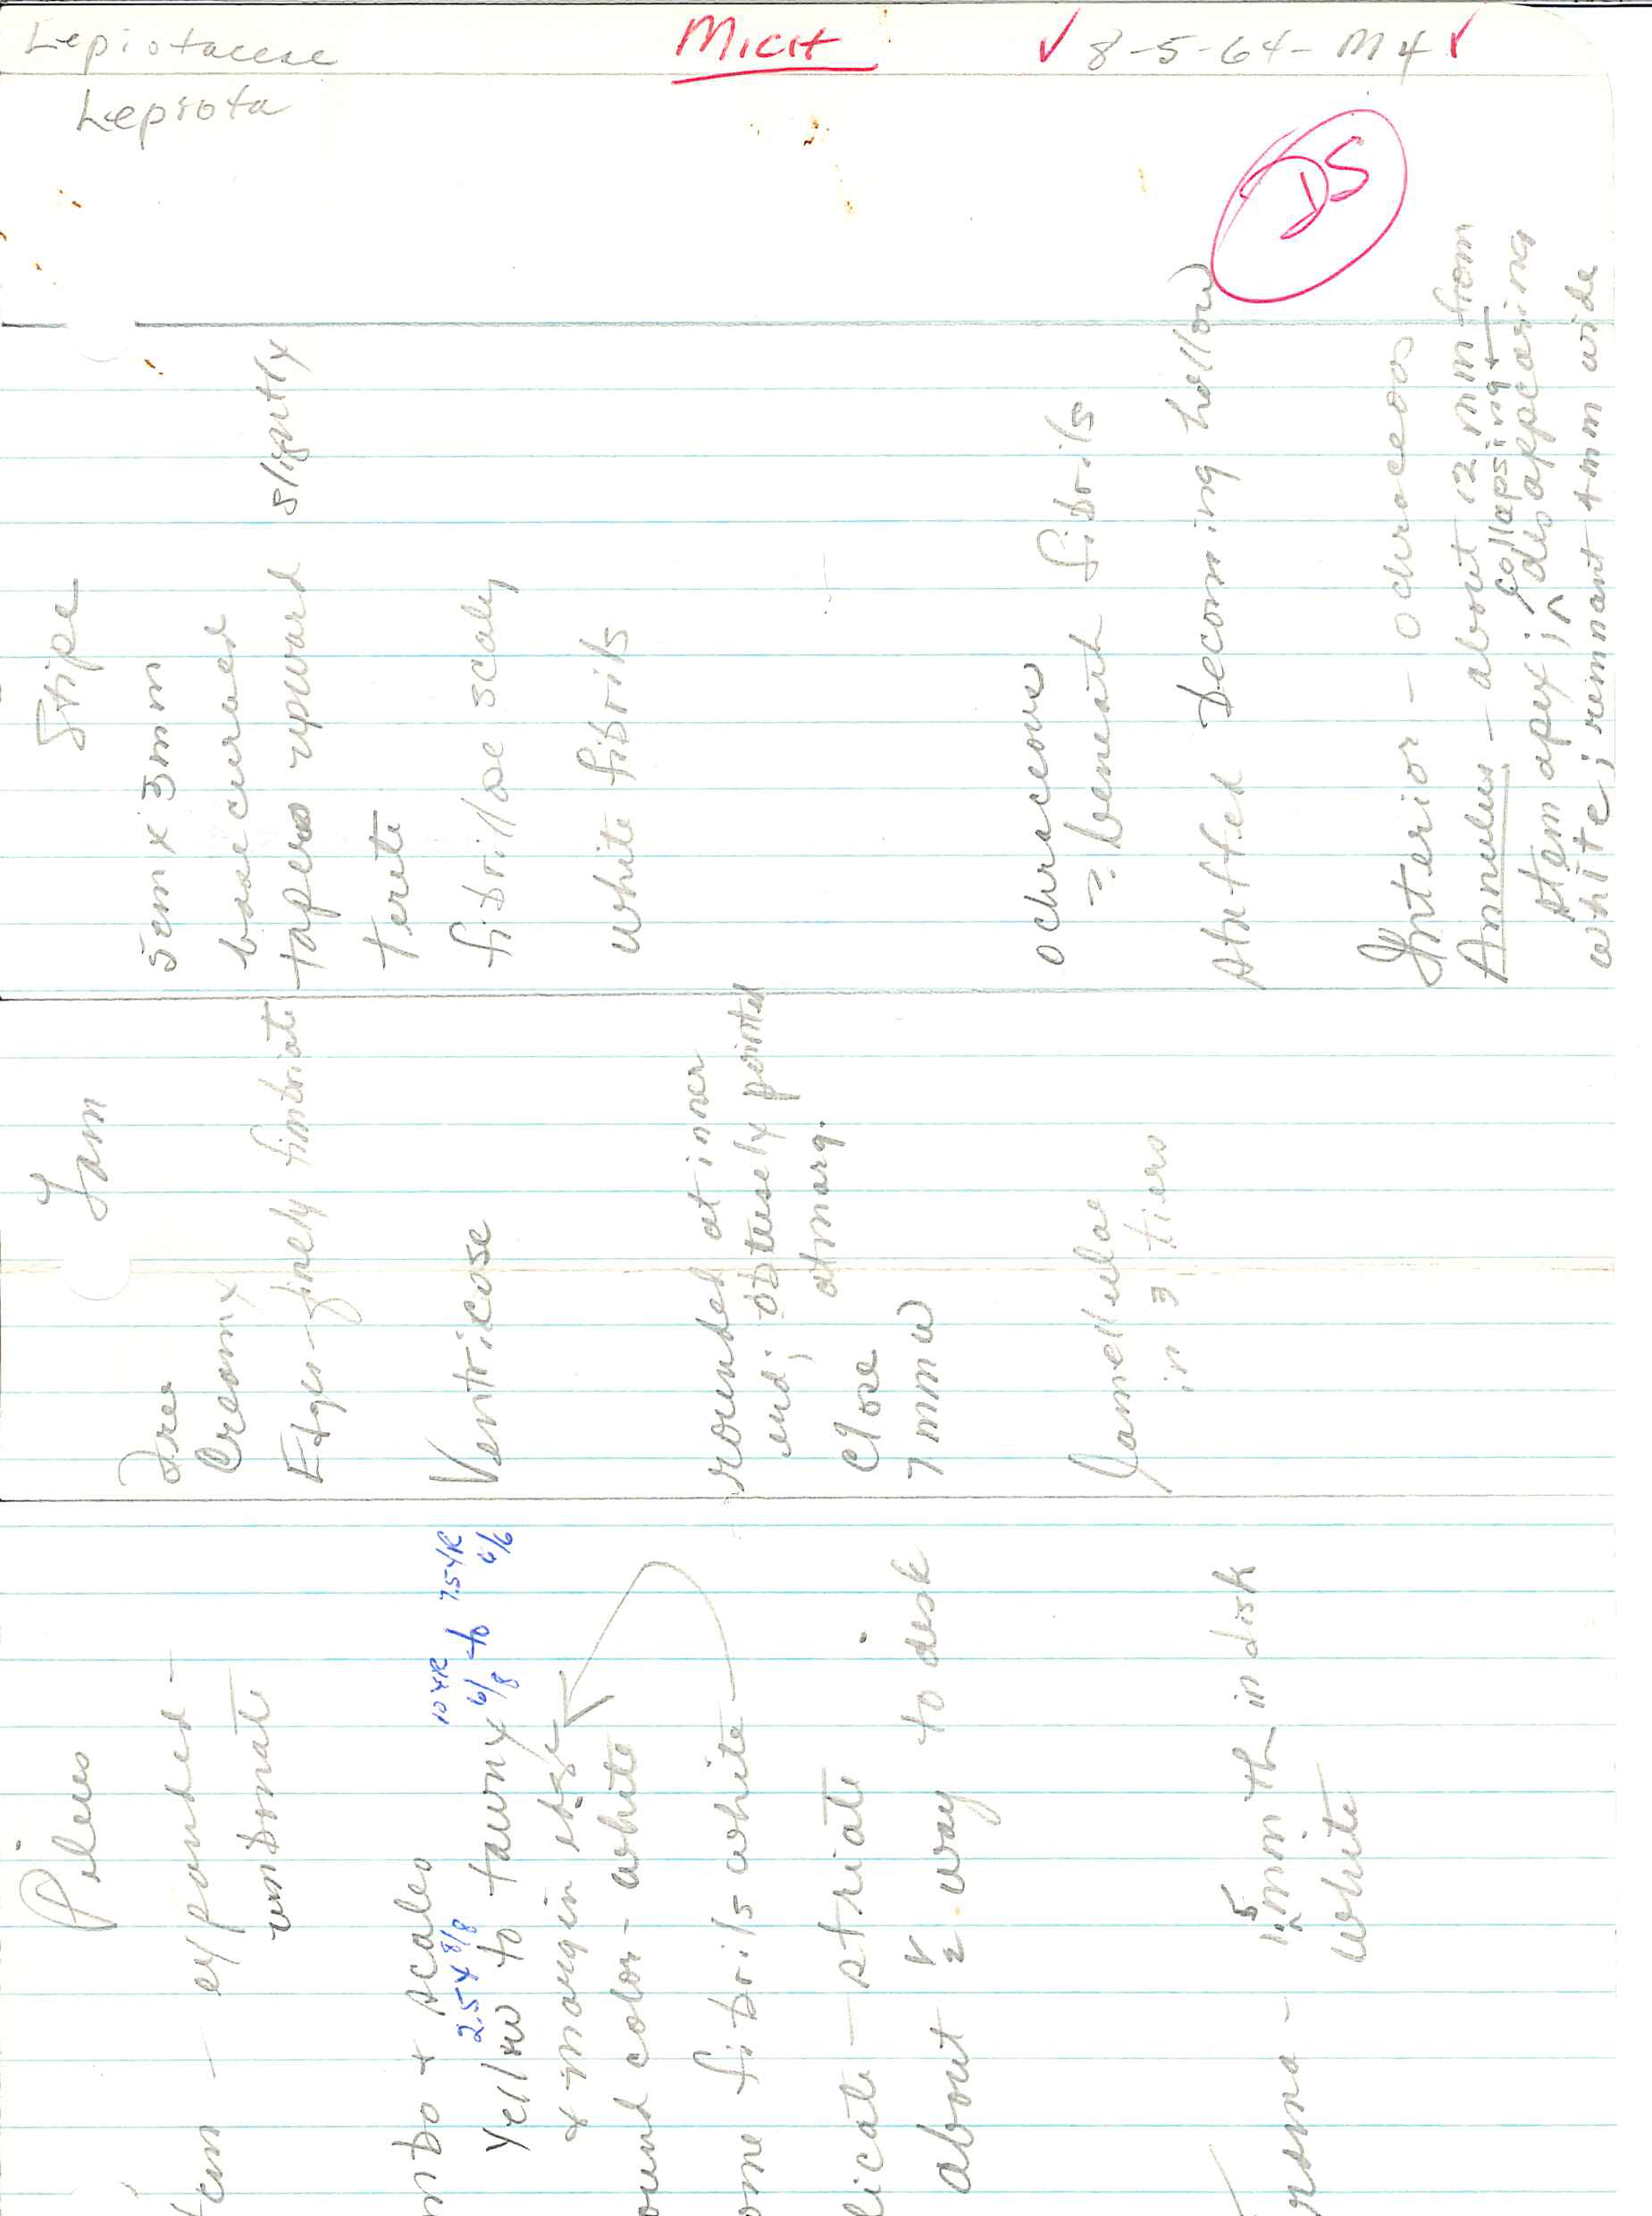 Lepiotaceae
MICH
✓ 8-5-64-M4 ✓
Lepiota
DS
Pileus
expanded -
umbonate
+ scales
2.5Y 8/8 10YR 6/8 to 7.5YR
Yellow to tawny
+ margin
color - white
fibrils white
striate
about ½ way to disk
1.5 mm th in disk
white
Lam
Free
Creamy
Edges - finely fimbriate
Ventricose
rounded at inner
end; obtusely pointed
at marg.
close
7 mm w
Lamellulae
in 3 tiers
Stipe
5 cm x 3 mm
base curved
tapers upward slightly
Terete
fibrillose scaly
white fibrils
ochraceous
beneath fibrils
stuffed becoming hollow
Interior - ochraceous
Annulus - about 12 mm from
stem apex; collapsing + disappearing
white; remnant 4 mm wide